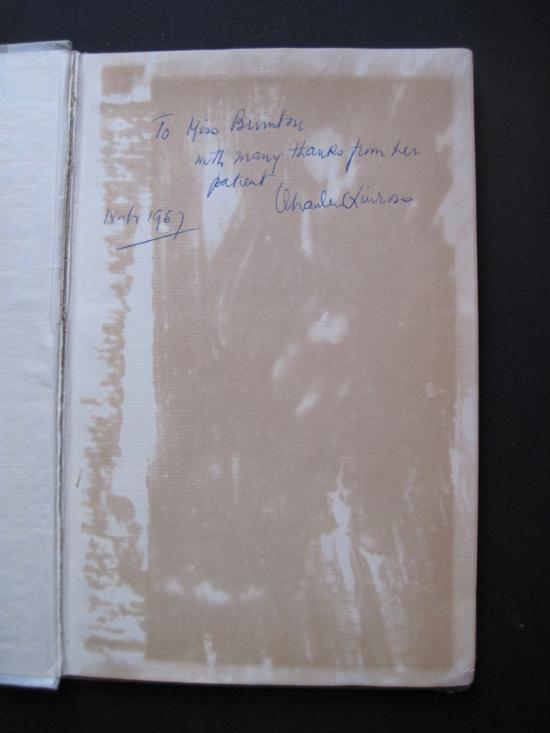 To Miss Brunton
with many thanks from her
patient Charles Kinross
1967